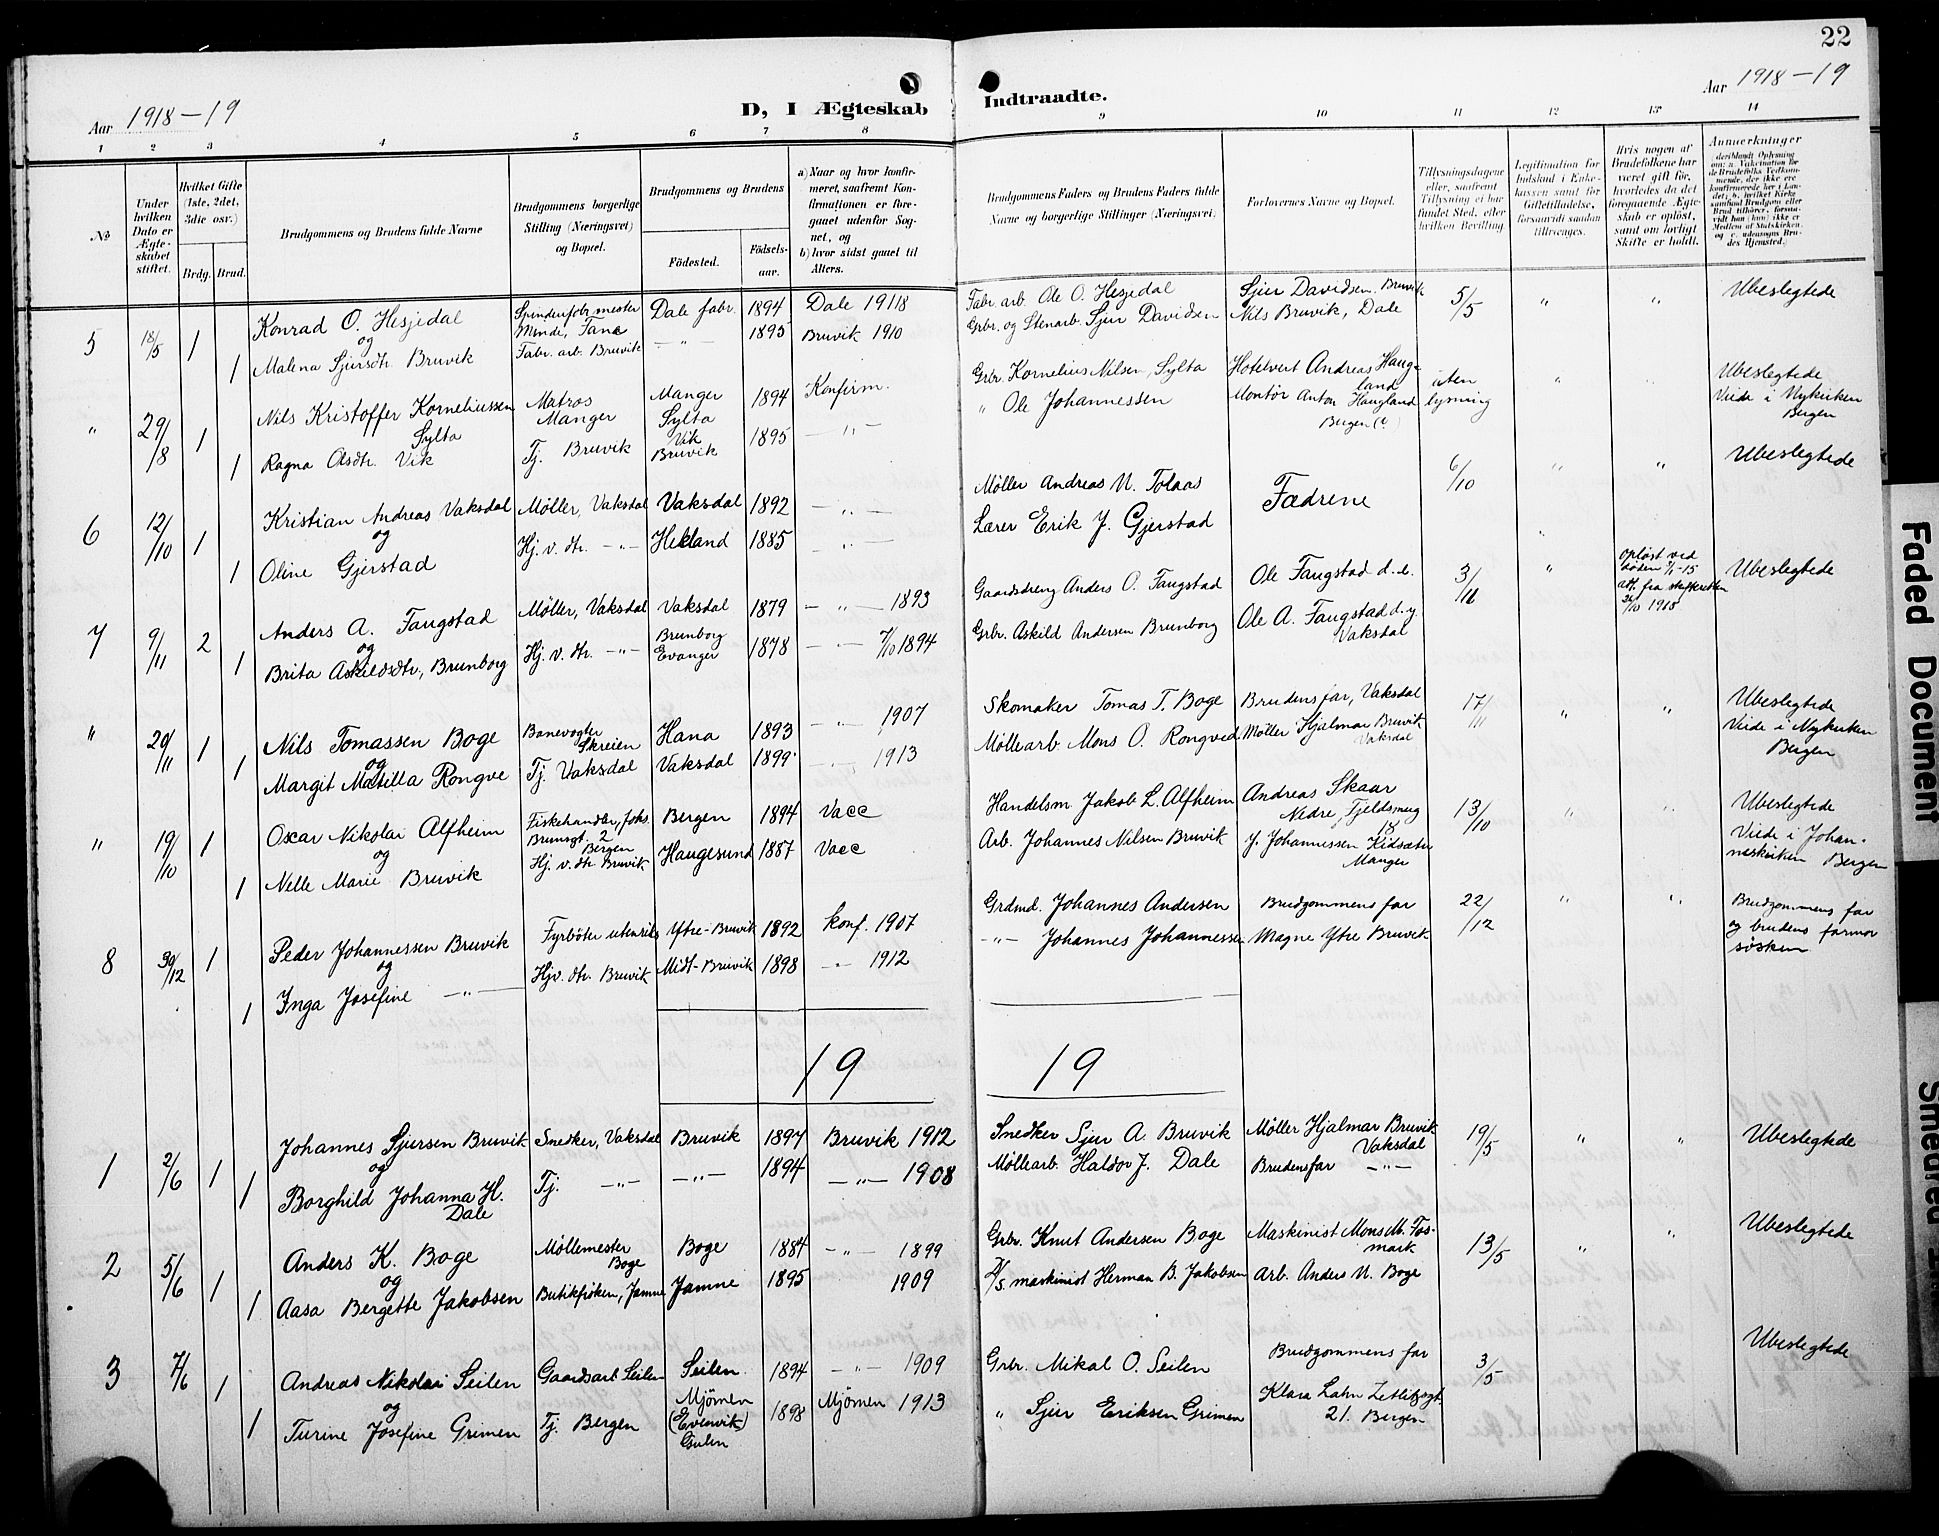 22
Aar 1918-19
D, I Ægteskab Indtraadte.
Aar 1918-19
1 2 3 4 5 6 7 8 9 10 11 12 13 14
No
Under hvilken Dato er Ægteskabet stiftet.
Hvilket Gifte (1ste, 2det, 3die osv.)
Brdg. Brud.
Brudgommens og Brudens fulde Navne
Brudgommens borgerlige Stilling (Næringsvei) og Bopæl.
Brudgommens og Brudens
Födested.
Födsels-aar.
a) Naar og hvor konfirmeret, saafremt Konfirmationen er foregaaet udenfor Sognet, og
b) hvor sidst gaaet til Alters.
Brudgommens Faders og Brudens Faders fulde Navne og borgerlige Stillinger (Næringsvei).
Forlovernes Navne og Bopæl.
Tillysningsdagene eller, saafremt Tillysning ei har fundet Sted, efter hvilken Bevilling.
Legitimation for Indskud i Enkekassen samt for Gifttetilladelse, forsaavidt saadan tiltrænges.
Hvis nogen af Brudefolkene har været gift før, hvorledes da det foregaaende Ægteskab er opløst, samt om lovligt Skifte er holdt.
Anmerkninger
5 18/5 1 Konrad O. Hesjedal Spinderfobr. mester Minde, Fana Dale fabr. 1894 Dale 19118 Fabr. arb. Ole O. Hesjedal Sjur Davidsen, Bruvik 5/5 " " Ubeslegtede
og
1 Malena Sjursdtr. Bruvik Fabr. arb. Bruvik —"— 1895 Bruvik 1910 Grbr. og Stenarb. Sjur Davidsen Nils Bruvik, Dale
" 29/8 1 Nils Kristoffer Korneliussen Sylta Matros Manger Manger Sylta 1894 Konfirm. Grbr. Kornelius Nilsen, Sylta Hotelvert Andreas Haugland uten lysning " Ubeslegtede
1 Ragna Olsdtr. Vik Tj. Bruvik Vik Bruvik 1895 —"— " Ole Johannessen Montör Anton Haugland Bergen Viede i Nykirken Bergen
6 12/10 1 Kristian Andreas Vaksdal Møller, Vaksdal Vaksdal 1892 —"— Møller Andreas N. Tolaas Fædrene 6/10 " " Ubeslegtede
og
1 Oline Gjerstad Hj. v. dtr. —"— Hekland 1885 —"— Lærer Erik J. Gjerstad
7 9/11 2 Anders A. Faugstad Møller, Vaksdal Vaksdal 1879 —"— 1893 Gaardsdreng Anders O. Faugstad Ole Faugstad d. e. 3/11 " opløst ved døden 1/1-15 att. fra skifteretten 26/10 1918 Ubeslegtede
og
1 Brita Askildsdtr, Brunborg Hj. v. dtr. —"— Brunborg Evanger 1878 —"— 7/10 1894 Grbr. Askild Andersen Brunborg Ole A. Faugstad d. y. Vaksdal
" 29/11 1 Nils Tomassen Boge Banevogter Skreien Hana 1893 —"— 1907 Skomaker Tomas T. Boge Brudens far, Vaksdal 17/11 " " Ubeslegtede
og
1 Margit Matilla Rongve Tj. Vaksdal Vaksdal 1899 —"— 1913 Møllearb. Mons O. Rongved Møller Hjalmar Bruvik Vaksdal Viede i Nykirken Bergen
" 19/10 1 Oscar Nikolai Alfheim Fiskehandler, Johs. Brunsgt 2 Bergen Bergen 1894 Vacc Handelsm Jakob L. Alfheim Andreas Skaar Nedre Fjeldsmug 18 13/10 " " Ubeslegtede
og
1 Nelle Marie Bruvik Hj. v. dtr. Bruvik Haugesund 1887 Vacc Arb. Johannes Nilsen Bruvik J. Johannessen Kidsæter Manger Viede i Johanneskirken Bergen
8 30/12 1 Peder Johannessen Bruvik Fyrböter utenriks Ytre-Bruvik 1892 Konf. 1907 Grdmd. Johannes Andersen Brudgommens far 22/12 " " Brudgommens far
og
1 Inga Josefine —"— Hjv. dtr. Bruvik Midt-Bruvik 1898 —"— 1912 —"— Johannes Johannessen Magne Ytre Bruvik og brudens farmor søsken
19 19
1 2/6 1 Johannes Sjursen Bruvik Snedker, Vaksdal Bruvik 1897 Bruvik 1912 Snedker Sjur A. Bruvik Møller Hjalmar Bruvik Vaksdal 19/5 " " Ubeslegtede
og
1 Borghild Johanna H. Dale Tj. —"— —"— 1894 —"— 1908 Møllearb. Haldor J. Dale Brudens far —"—
2 5/6 1 Anders K. Boge Møllemester Boge Boge 1884 —"— 1899 Grbr. Knut Andersen Boge Maskinist Mons M. Fosmark 13/5 " " Ubeslegtede
og
1 Aasa Bergette Jakobsen Butikfröken, Jamne Jamne 1895 1909 D/S. maskinist Herman B. Jakobsen Arb. Anders N. Boge
3 7/6 1 Andreas Nikolai Seilen Gaardsarb Seilen Seilen 1894 —"— 1909 Grbr. Mikal O. Seilen Brudgommens far 3/5 Ubeslegtede
og
1 Turine Josefine Grimen Tj. Bergen Mjömen (Evenvik) Gulen 1898 Mjömen 1913 " Sjur Eriksen Grimen Klara Lahn Zetlitzgt. 21. Bergen
Faded Document
Smeared I